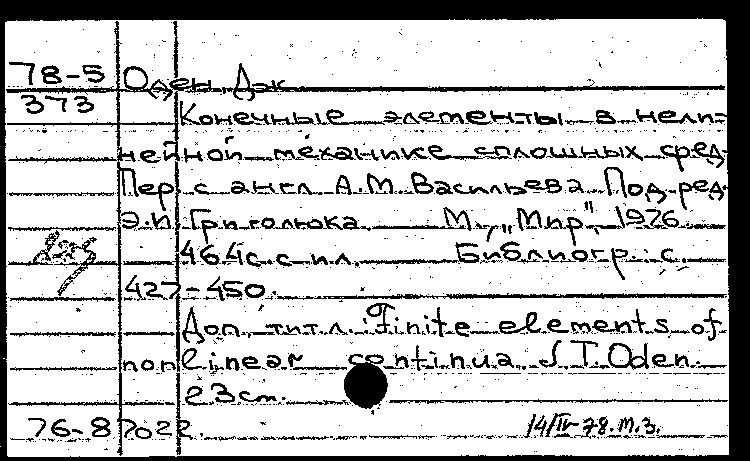 78-5 Оден, Дж.
373 Конечные элементы в нели-
нейной механике сплошных сред.
Пер. с англ. А.М. Васильева. Под ред.
Э.И. Григолюка. М., „Мир", 1976.
464с. с ил. Библиогр.: с.
427-450.
Доп. тит. л.: Finite elements of
nonlinear continua. J.T. Oden.
23 cm.
76-87022. 14/IV-78. М.З.